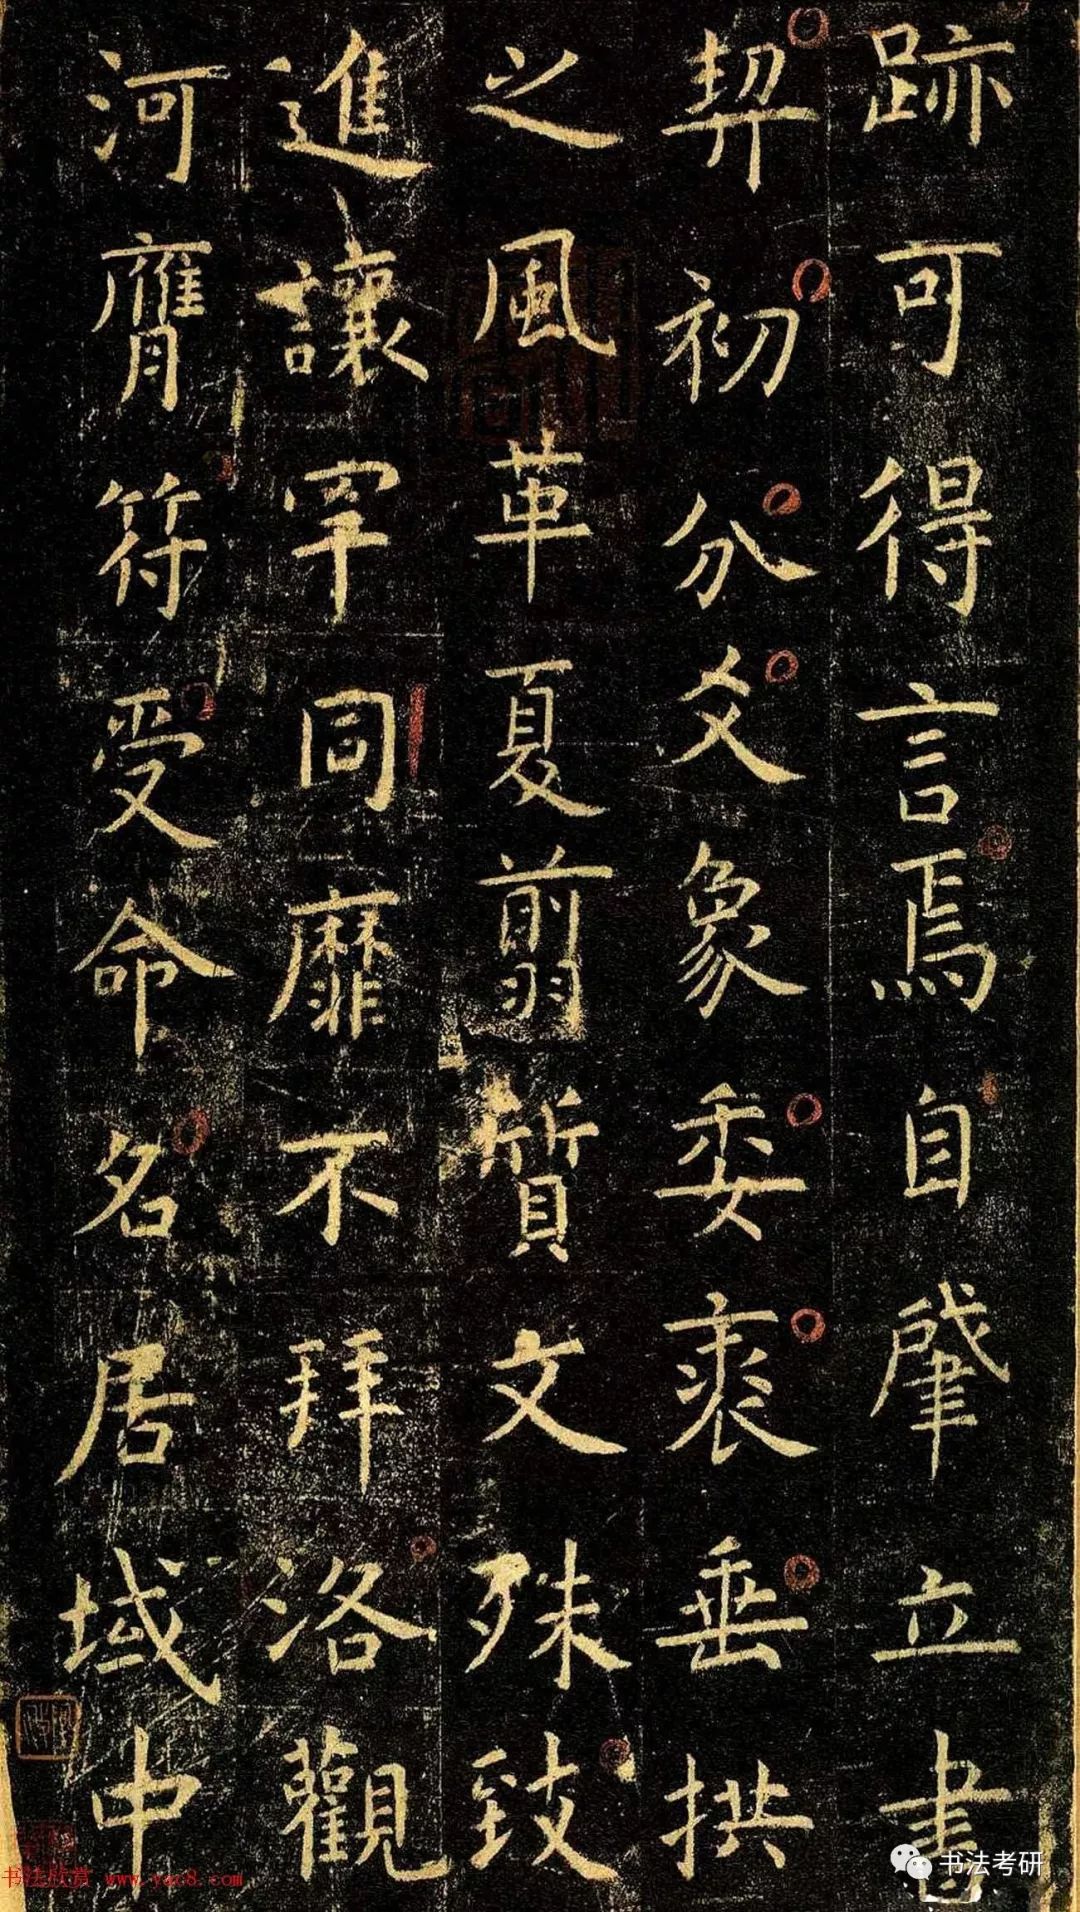 跡可得言焉自肇立書
契初分爻象委裘垂拱
之風革夏翦質文殊致
進讓罕同靡不拜洛觀
河膺符受命名居域中
书法欣赏 www.yac8.com
书法考研